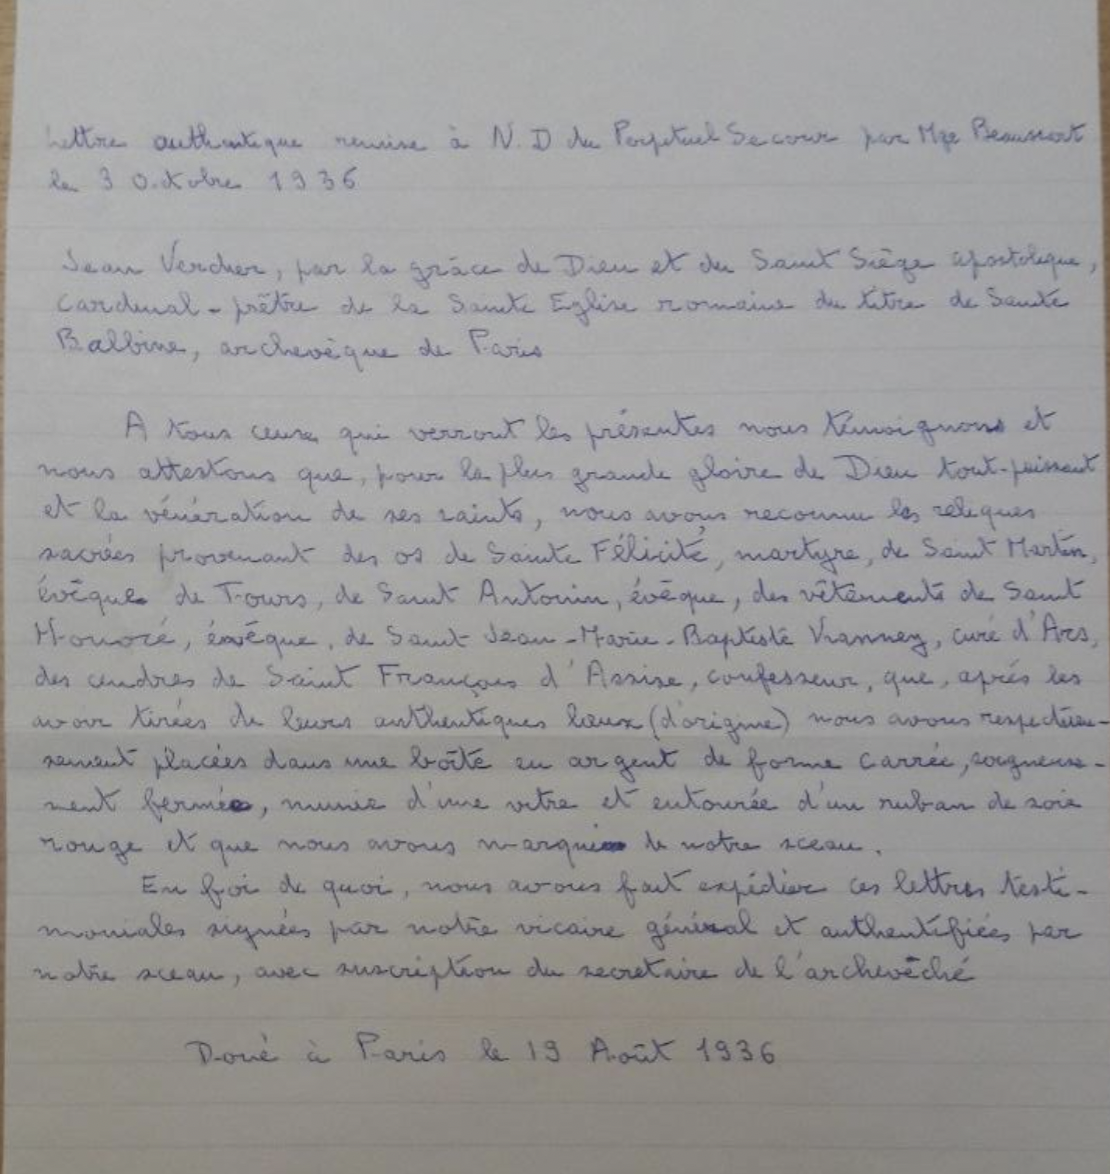 Lettre authentique remise à N. D du Perpetuel Secour par Mgr Beaussart
le 3 Octobre 1936
Jean Vercher, par la grâce de Dieu et du Saint Siège apostolique,
Cardinal-prêtre de la Sainte Eglise romaine du titre de Sainte
Balbine, archevèque de Paris
A tous ceux qui verront les présentes nous témoignons et
nous attestons que, pour la plus grande gloire de Dieu tout-puissant
et la vénération de ses saints, nous avons reconnu les reliques
sacrées provenant des os de Sainte Félicité, martyre, de Saint Martin,
évêque de Tours, de Saint Antonin, évêque, des vêtements de Saint
Honoré, évêque, de Saint Jean-Marie-Baptiste Vianney, curé d'Ars,
des cendres de Saint François d'Assise, confesseur, que, après les
avoir tirées de leurs authentiques lieux (d'origine) nous avons respectueu-
sement placées dans une boîte en argent de forme carrée, soigneuse-
ment fermée, munie d'une vitre et entourée d'un ruban de soie
rouge et que nous avons marquée de notre sceau.
En foi de quoi, nous avons fait expédier ces lettres testi-
moniales signées par notre vicaire général et authentifiées par
notre sceau, avec suscription du secretaire de l'archevêché
Doné à Paris le 19 Août 1936